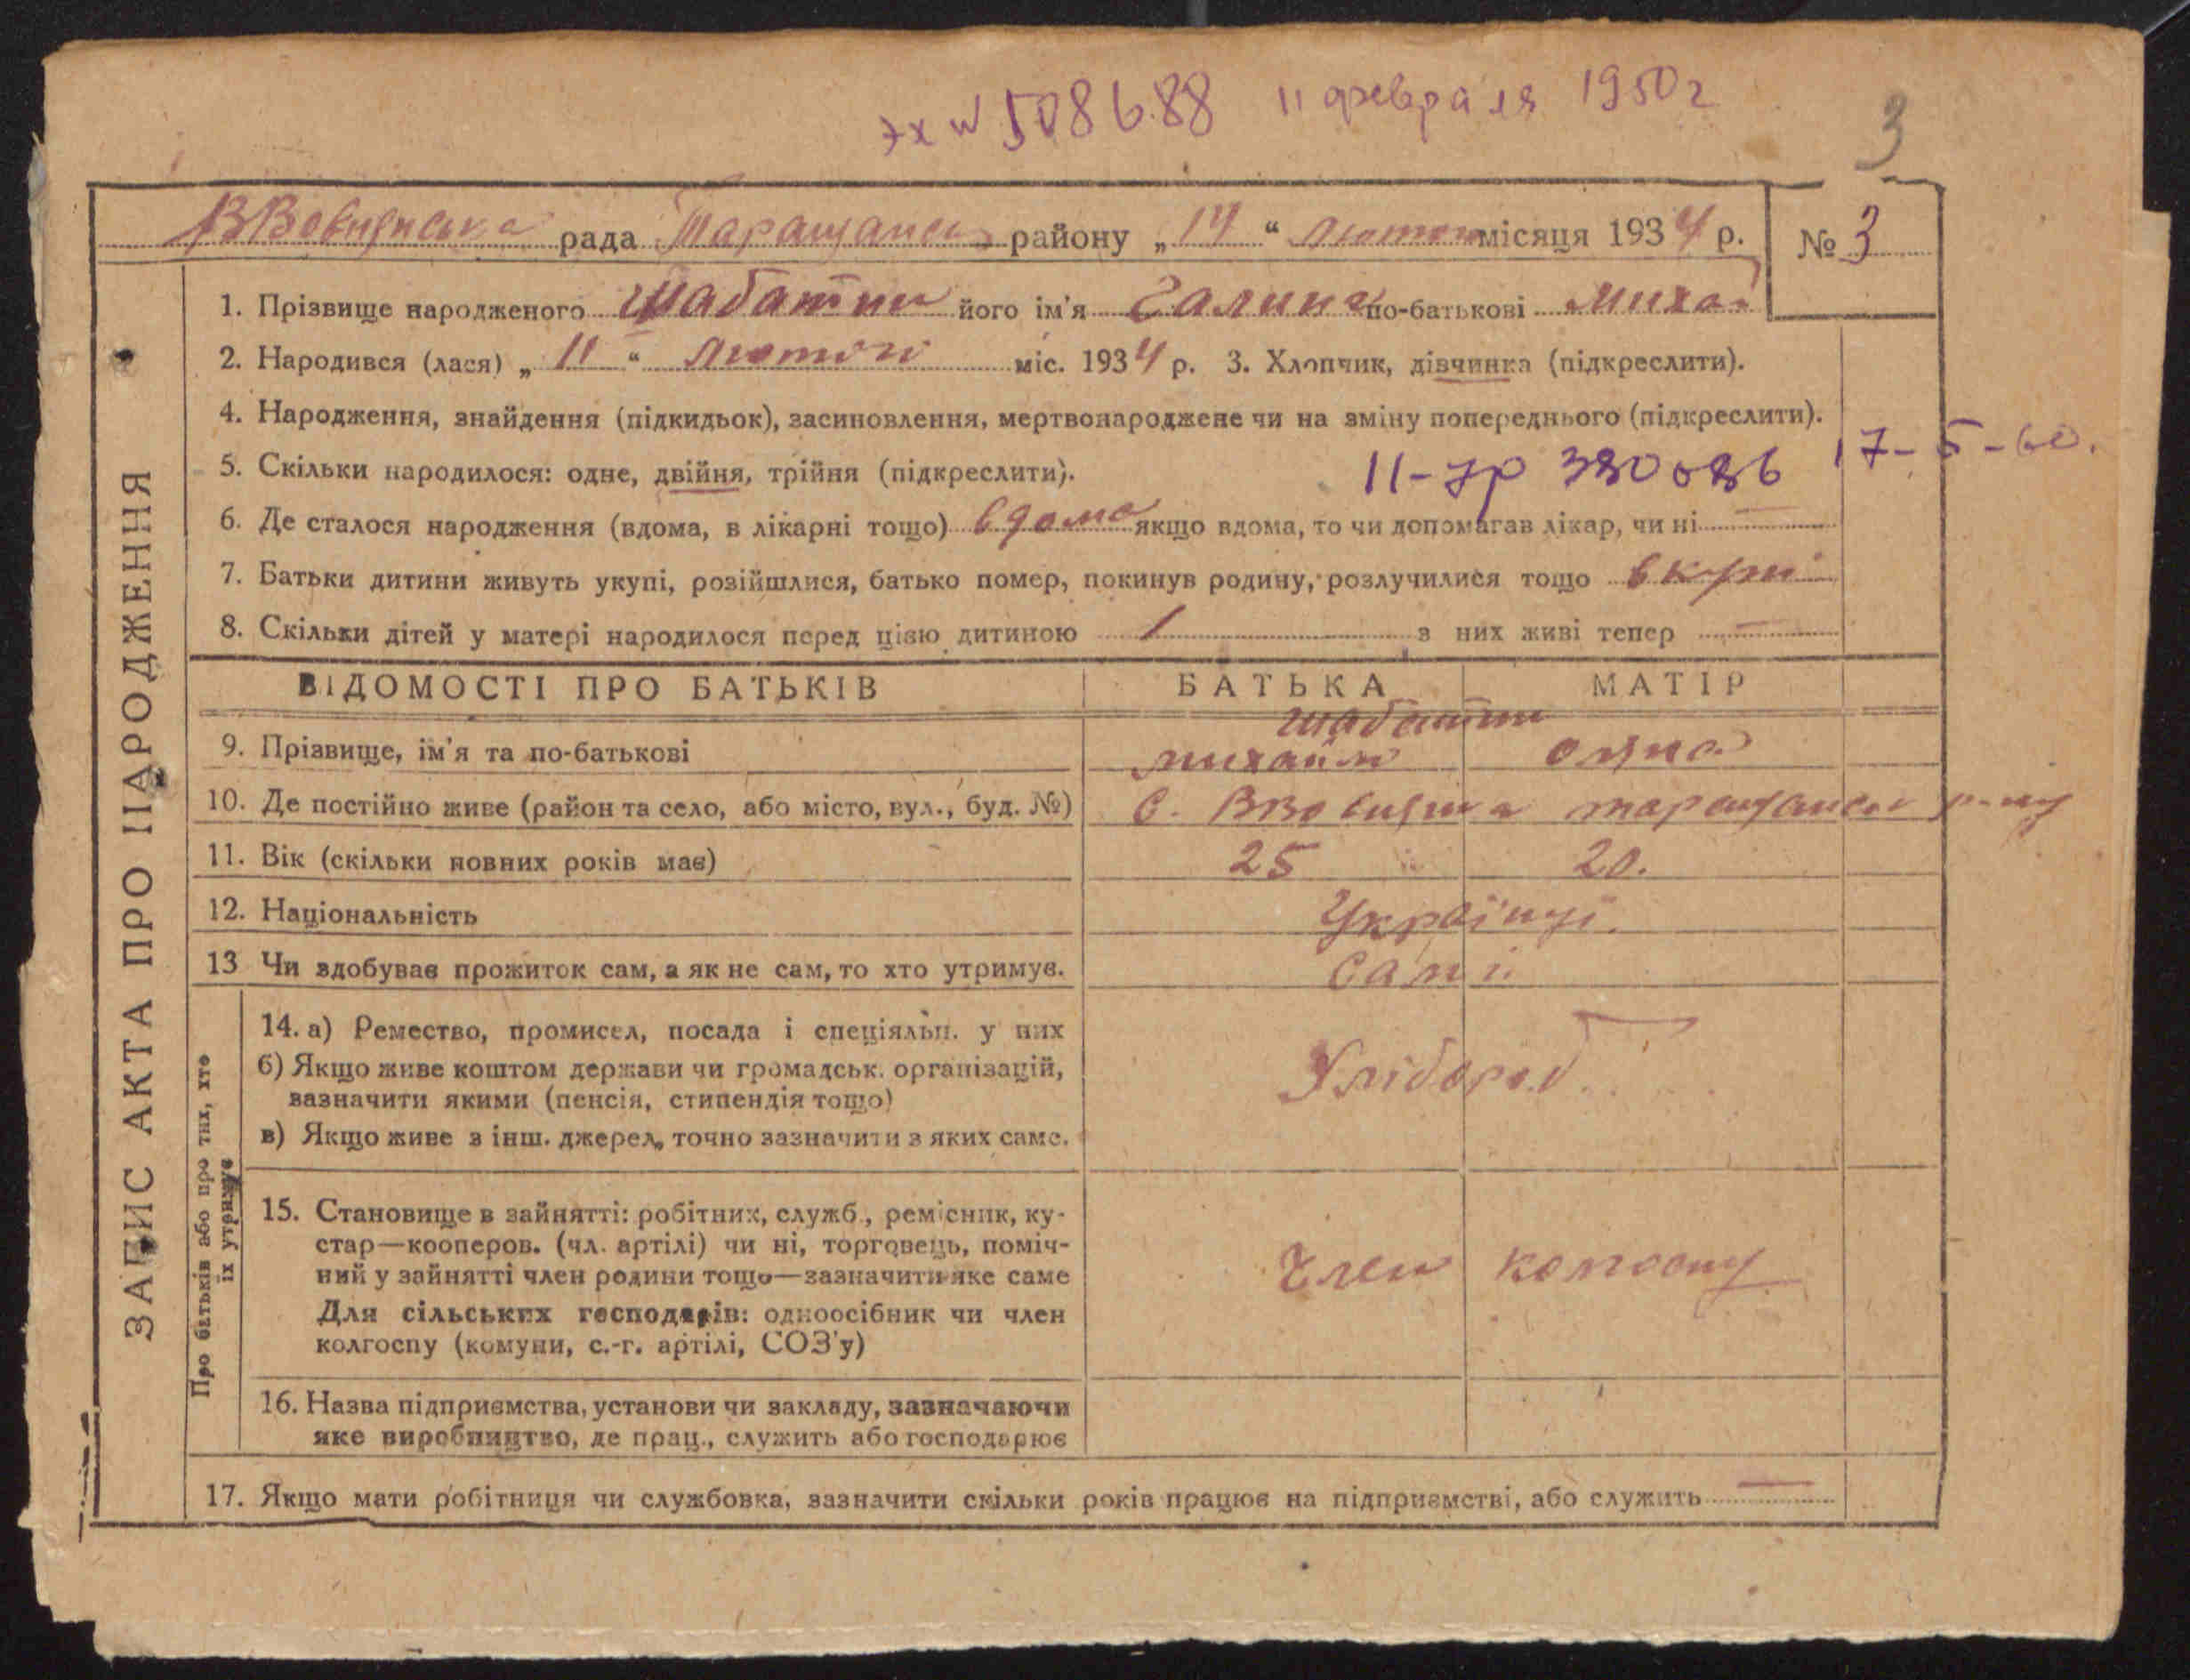 № 508688 11 февраля 1950 г
3
рада Таращанськ району „14“ лютого місяця 1934 р. № 3
ЗАПИС АКТА ПРО НАРОДЖЕННЯ
1. Прізвище народженого Шабатин його ім'я Галина по-батькові Михай
2. Народився (лася) „11“ лютого міс. 1934 р. 3. Хлопчик, дівчинка (підкреслити).
4. Народження, знайдення (підкидьок), засиновлення, мертвонароджене чи на зміну попереднього (підкреслити).
5. Скільки народилося: одне, двійня, трійня (підкреслити).
17-5-60.
6. Де сталося народження (вдома, в лікарні тощо) вдома якщо вдома, то чи допомагав лікар, чи ні —
7. Батьки дитини живуть укупі, розійшлися, батько помер, покинув родину, розлучилися тощо вкупі
8. Скільки дітей у матері народилося перед цією дитиною 1 з них живі тепер —
ВІДОМОСТІ ПРО БАТЬКІВ БАТЬКА МАТІР
Шабатин
9. Прізвище, ім'я та по-батькові Михайло
10. Де постійно живе (район та село, або місто, вул., буд. №) с. таращанськ р-ну
11. Вік (скільки повних років має) 25 20.
12. Національність Українці.
13 Чи здобуває прожиток сам, а як не сам, то хто утримує. Самі
Про батьків або про тих, хто
їх утримує
14. а) Ремество, промисел, посада і спеціяльн. у них
б) Якщо живе коштом держави чи громадськ. організацій,
зазначити якими (пенсія, стипендія тощо)
Хлібороб
в) Якщо живе з інш. джерел, точно зазначити з яких саме.
15. Становище в зайнятті: робітник, служб., ремісник, ку-
стар—кооперов. (чл. артілі) чи ні, торговець, поміч-
ний у зайнятті член родини тощо—зазначити яке саме
Член колгоспу
Для сільських господарів: одноосібник чи член
колгоспу (комуни, с.-г. артілі, СОЗ'у)
16. Назва підприємства, установи чи закладу, зазначаючи
яке виробництво, де прац., служить або господарює
17. Якщо мати робітниця чи службовка, зазначити скільки років працює на підприємстві, або служить —